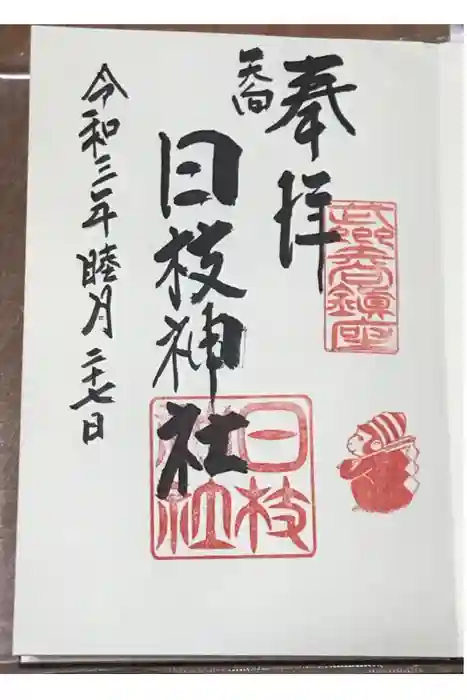 奉拝
鎮座
日枝神社
日枝
神社
令和三年睦月二十七日